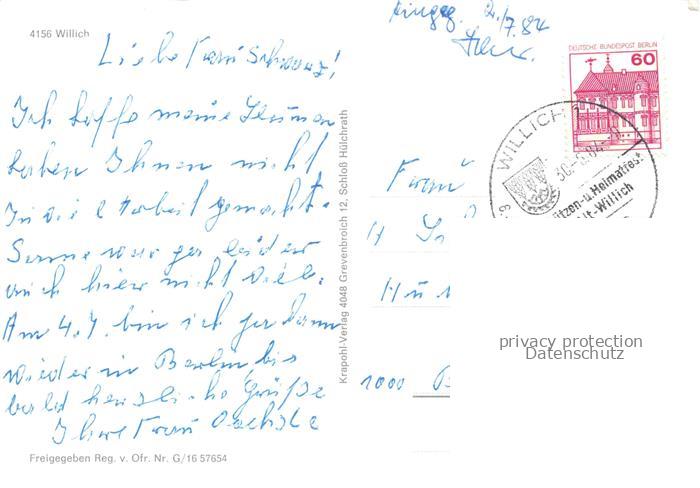 4156 Willich
Liebe Frau Schwarz!
Ich hoffe meine Blumen
haben Ihnen nicht
zu viel Arbeit gemacht.
Sonne war ja leider
auch hier nicht viel.
Am 4.7. bin ich ja dann
wieder in Berlin bis
bald herzliche Grüße
Ihre Frau
Freigegeben Reg. v. Ofr. Nr. G/16 57654
Krapohl-Verlag 4048 Grevenbroich 12, Schloß Hülchrath
eingeg. 2./7.84
DEUTSCHE BUNDESPOST BERLIN
60
WILLICH 1
30.-6.84
ützen-u.Heimatfest
lt-Willich
Frau
1000 B
privacy protection
Datenschutz